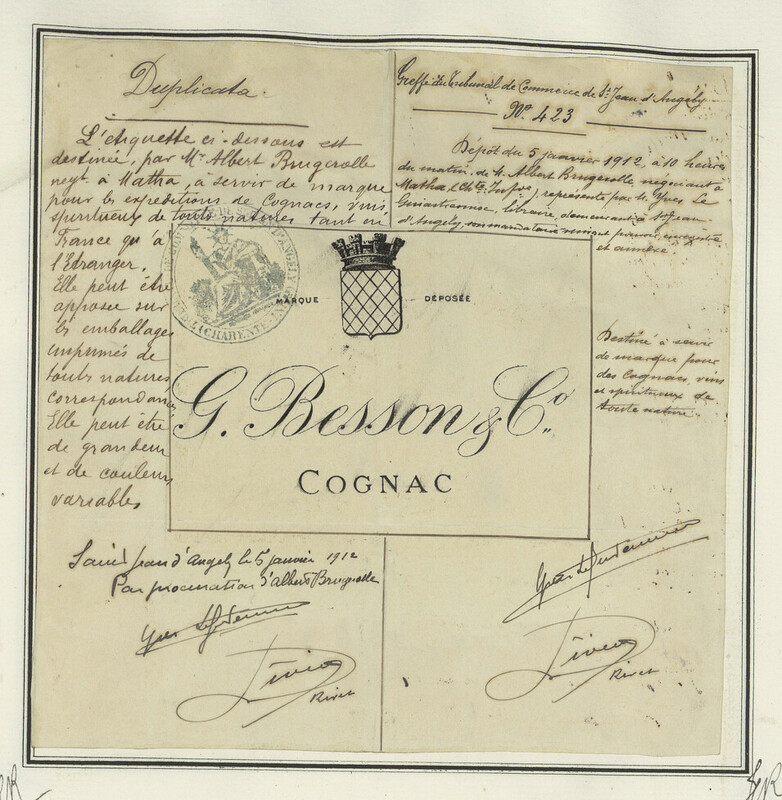 Duplicata.
L'étiquette ci-dessous est
destinée, par Mr Albert Brugerolle
negt à Matha, à servir de marque
pour les expéditions de Cognacs, vins
spiritueux de toutes natures tant en
France qu'à
l'Etranger.
Elle peut être
apposée sur
les emballages
imprimés de
toutes natures
correspondances
Elle peut être
de grandeur
et de couleurs
variables
Greffe du Tribunal de Commerce de St Jean d'Angély
No. 423
Dépôt du 5 janvier 1912 à 10 heures
du matin, de M. Albert Brugerolle négociant à
Matha (Chte Infre), représenté par M. Yves Le
libraire, demeurant à St Jean
d'Angély, son mandataire suivant pouvoir enregistré
et annexé.
Destiné à servir
de marque pour
des Cognacs, vins
et spiritueux de
toute nature.
(CHARENTE
MARQUE DÉPOSÉE
G. Besson & Co.
COGNAC
Saint Jean d'Angely le 5 janvier 1912
Par procuration d'Albert Brugerolle
Yves
Rivet
Yves
Rivet